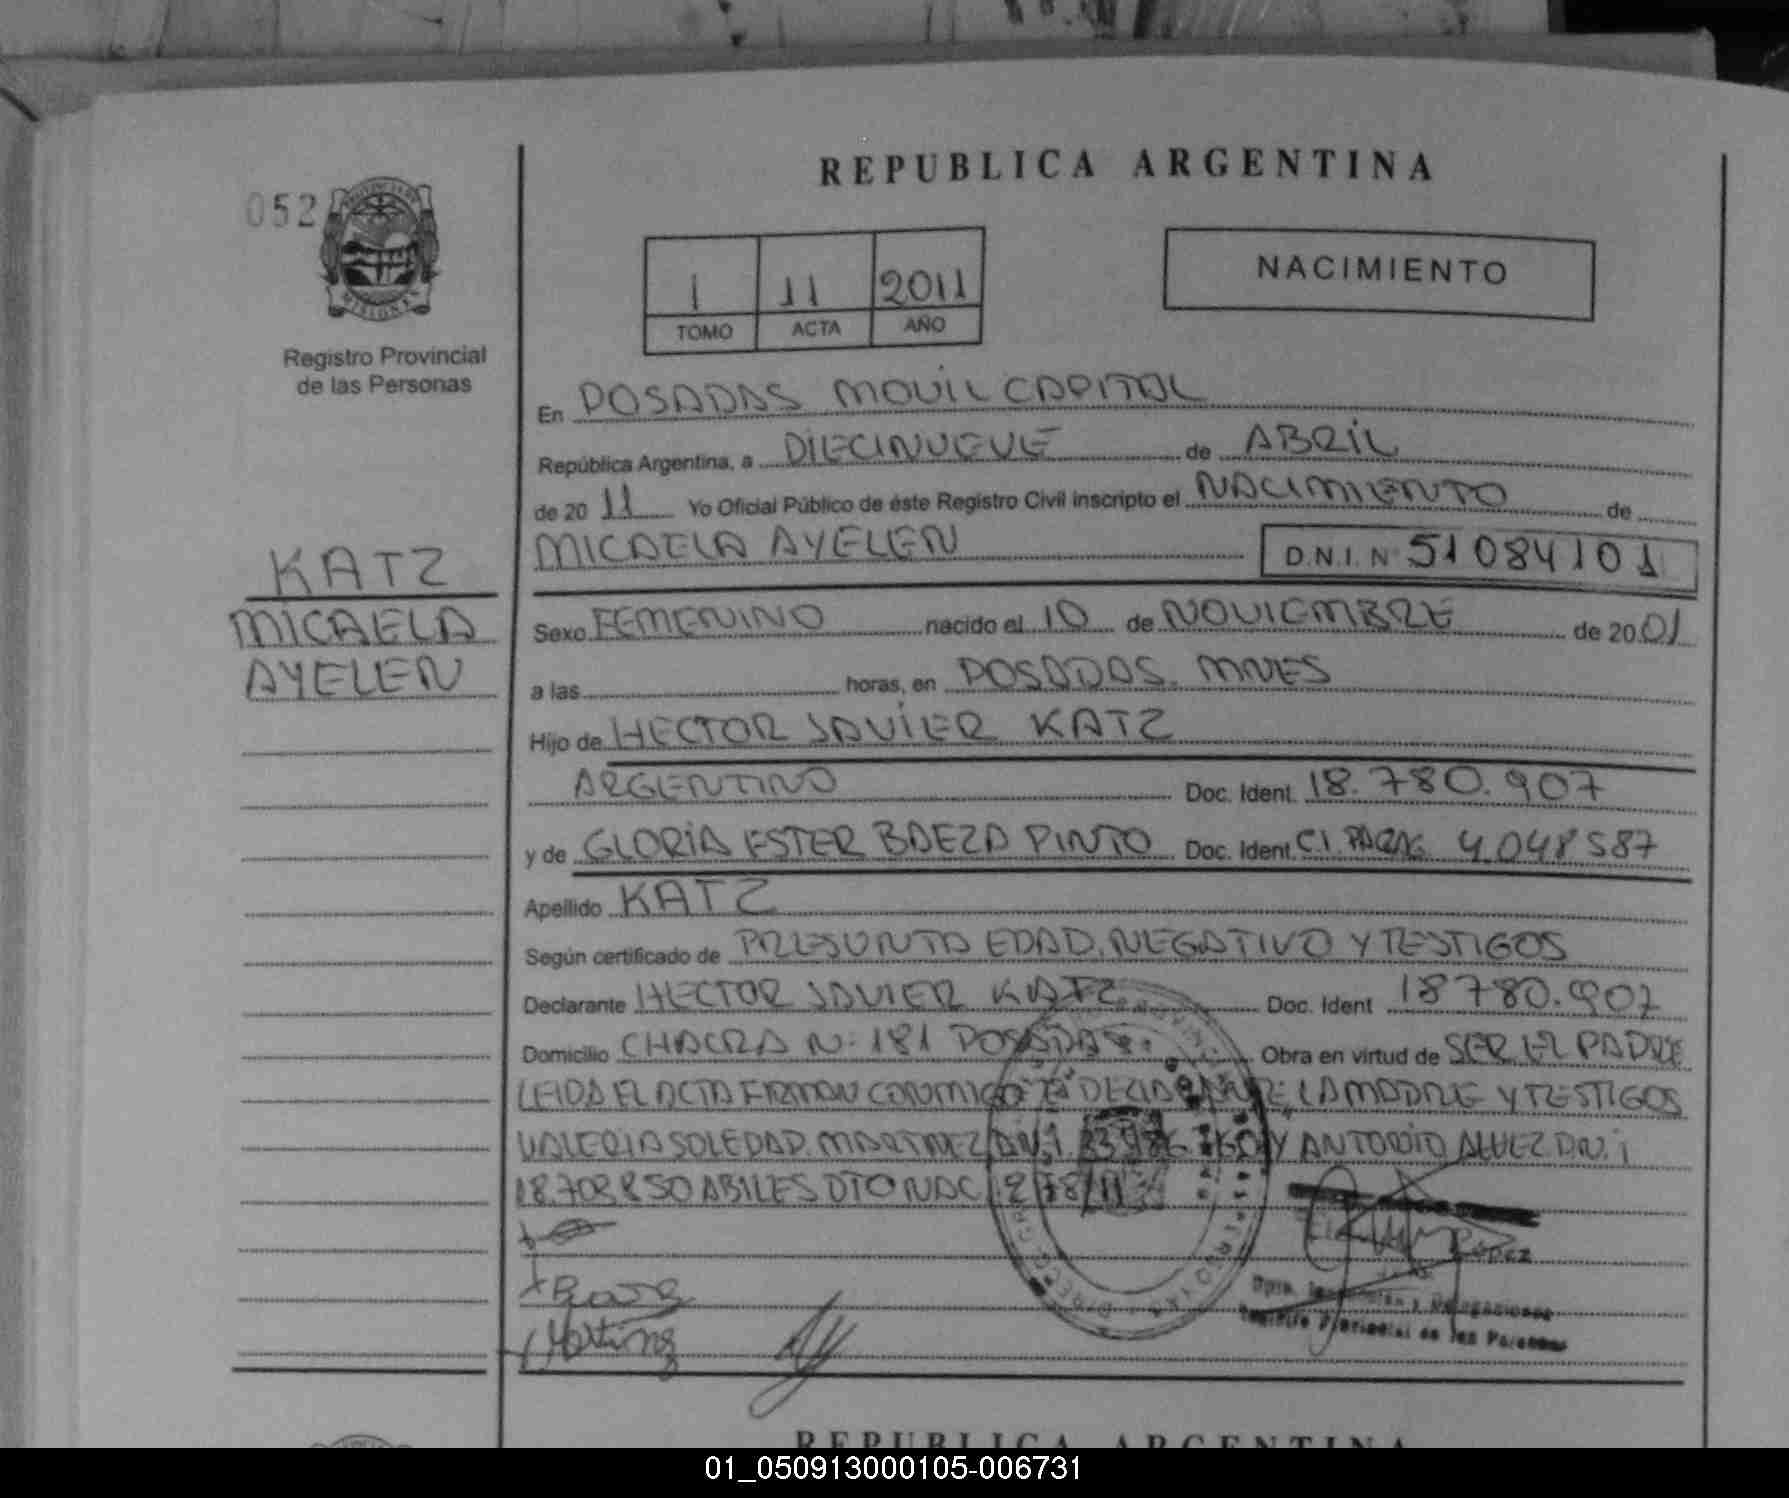 REPUBLICA ARGENTINA
052
NACIMIENTO
1 11 2011
TOMO ACTA AÑO
Registro Provincial
de las Personas
En POSADAS MOVIL CAPITAL
República Argentina, a DIECINUEVE de ABRIL
de 20 11 Yo Oficial Público de éste Registro Civil inscripto el NACIMIENTO de
MICAELA AYELEN D.N.I. Nº 51084101
KATZ
MICAELA
AYELEN
Sexo FEMENINO nacido el 10 de NOVIEMBRE de 20 01
a las horas, en POSADAS. MNES
Hijo de HECTOR JAVIER KATZ
ARGENTINO Doc. Ident. 18.780.907
y de GLORIA ESTER BAEZA PINTO Doc. Ident. C.I. PARAG. 4.048587
Apellido KATZ
Según certificado de PRESUNTA EDAD, NEGATIVO Y TESTIGOS
Declarante HECTOR JAVIER KATZ Doc. Ident 18780.907
Domicilio CHACRA N· 181 POSADAS. Obra en virtud de SER EL PADRE
LEIDA EL ACTA FIRMAN CONMIGO LA MADRE Y TESTIGOS
VALERIA SOLEDAD MARTINEZ DN.I. Y ANTONIO ALVEZ DN.I
18.708850 DTO NAC. 278/11
López
Delegaciones
Registro Provincial de las Personas
REPUBLICA ARGENTINA
01_050913000105-006731